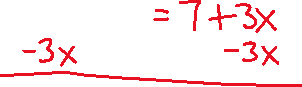 = 7 + 3x
-3x -3x